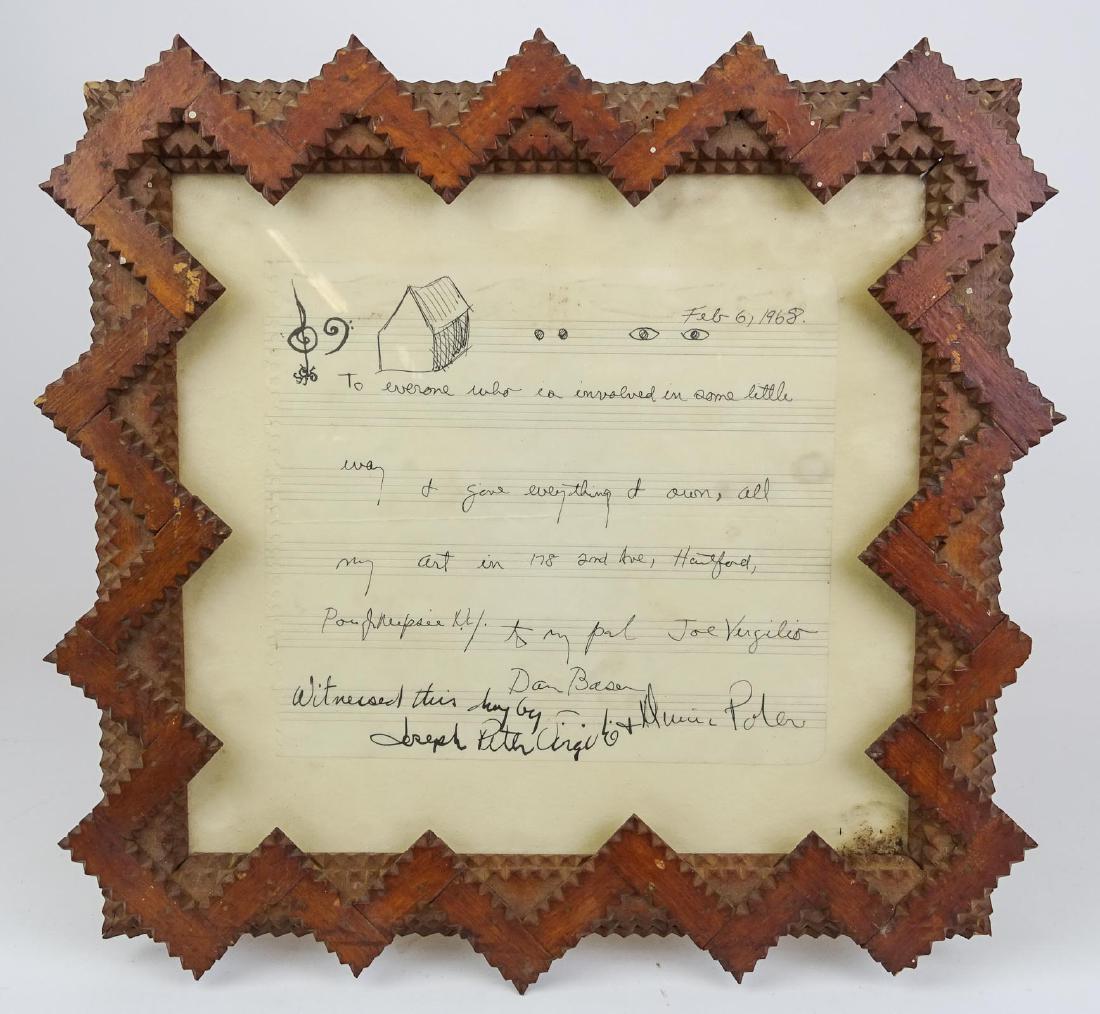 Feb 6, 1968.
To everone who is involved in some little
way I give everything I own, all
my art in 178 2nd Ave, Hartford,
Poughkeepsie N.Y. to my pal Joe Virgilio
Dan Basen
Witnessed this day by
Joseph Peter Virgilio +